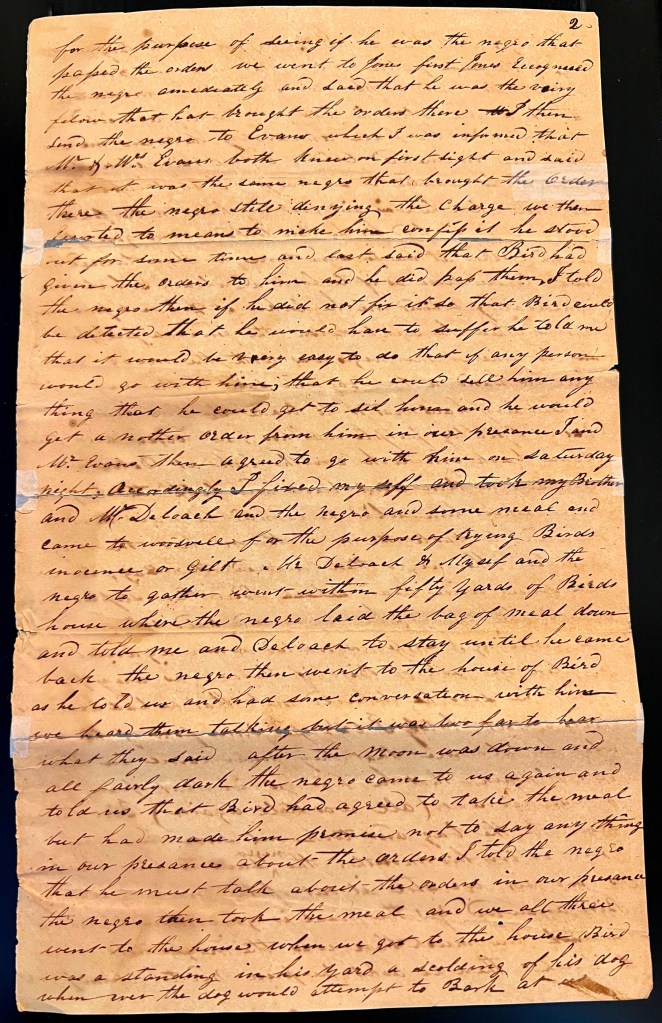 2
for the purpose of seeing if he was the negro that
passed the orders we went to Jones first Jones Recognised
the negro amediately and said that he was the very
felow that hat brought the orders there I then
send the negro to Evans which I was informed that
Mr & Mrs Evans both knew on first sight and said
that it was the same negro that brought the order
there the negro still denying the Charge we then
resorted to means to make him confess it he stood
out for some time and last said that Bird had
given the orders to him and he did pass them, I told
the negro then if he did not fix it so that Bird could
be detected that he would have to suffer he told me
that it would be very easy to do that if any person
would go with him, that he could sell him any
thing that he could get to sell him and he would
get a nother order from him in our presance I and
Mr Evans then agreed to go with him on saturday
night, Accordingly I fixed my self and took my Brother
and Mr Deloach and the negro and some meal and
came to woodvill for the purpose of trying Birds
inocence or gilt. Mr Deloach & Myself and the
negro to gather went within fifty yards of Birds
house where the negro laid the bag of meal down
and told me and Deloach to stay until he came
back the negro then went to the house of Bird
as he told us and had some conversation with him
we heard them talking but it was two far to hear
what they said after the moon was down and
all fairly dark the negro came to us again and
told us that Bird had agreed to take the meal
but had made him promise not to say any thing
in our presance about the orders I told the negro
that he must talk about the orders in our presance
the negro then took the meal and we all three
went to the house when we got to the house Bird
was a standing in his yard a scolding of his dog
when ever the dog would attempt to Bark at